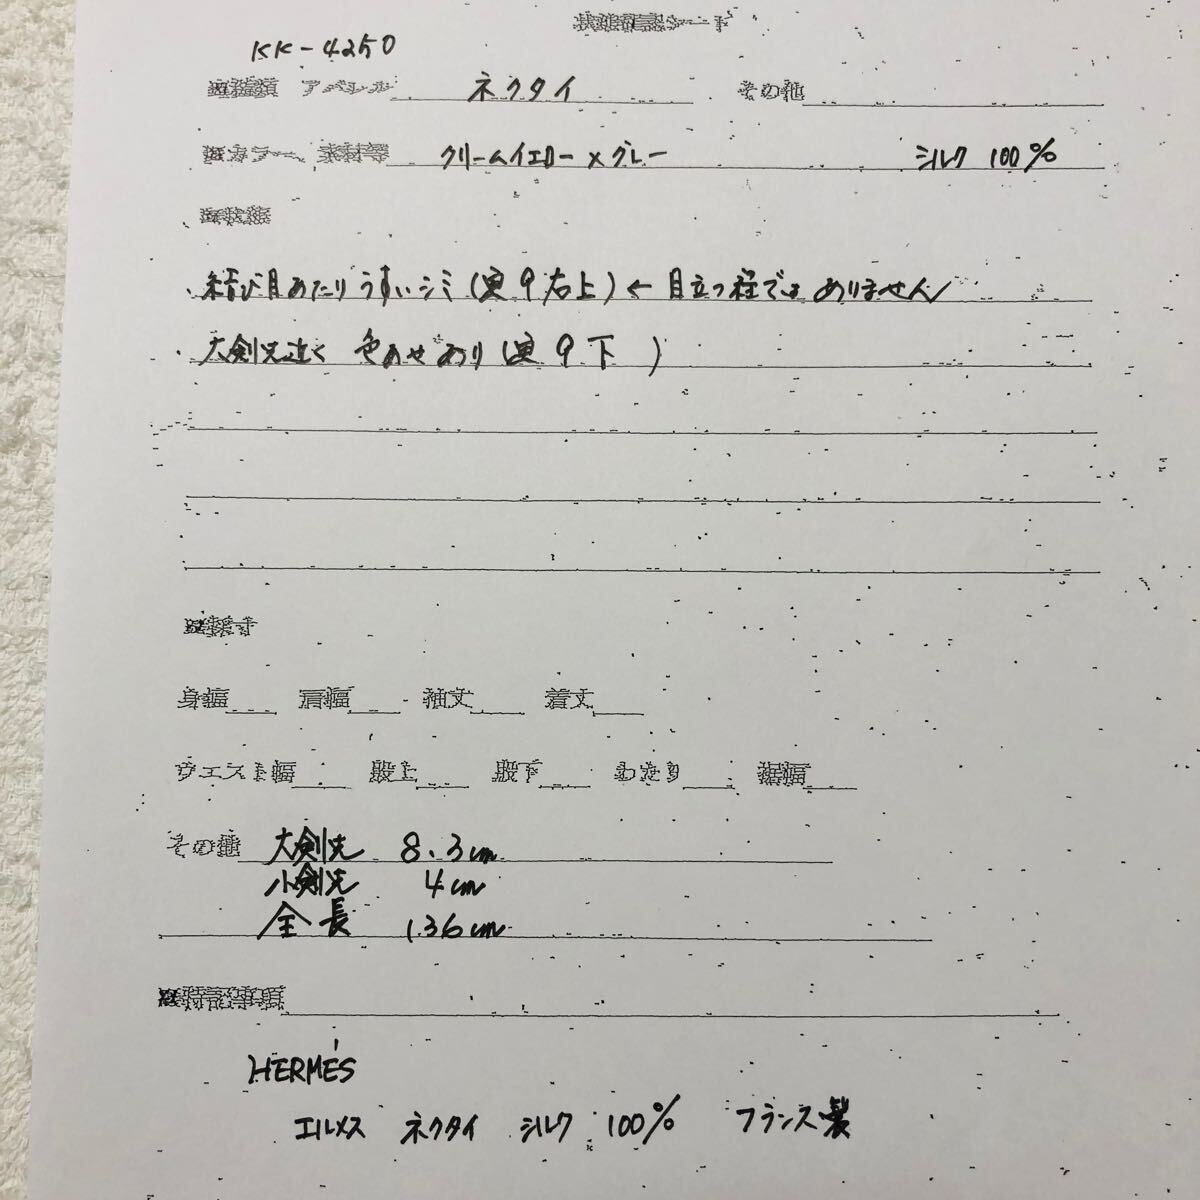 状態確認シート
KK-4250
アパレル ネクタイ その他
カラー、素材等 クリームイエロー×グレー シルク 100%
状態
・結び目あたりうすいシミ(写9右上)←目立つ程ではありません
・大剣先近く 色あせあり(写9下 )
採寸
身幅 肩幅 袖丈 着丈
ウエスト幅 股上 股下 わたり 裾幅
その他 大剣先 8.3cm
小剣先 4cm
全長 136cm
特記事項
HERMÈS
エルメス ネクタイ シルク 100% フランス製